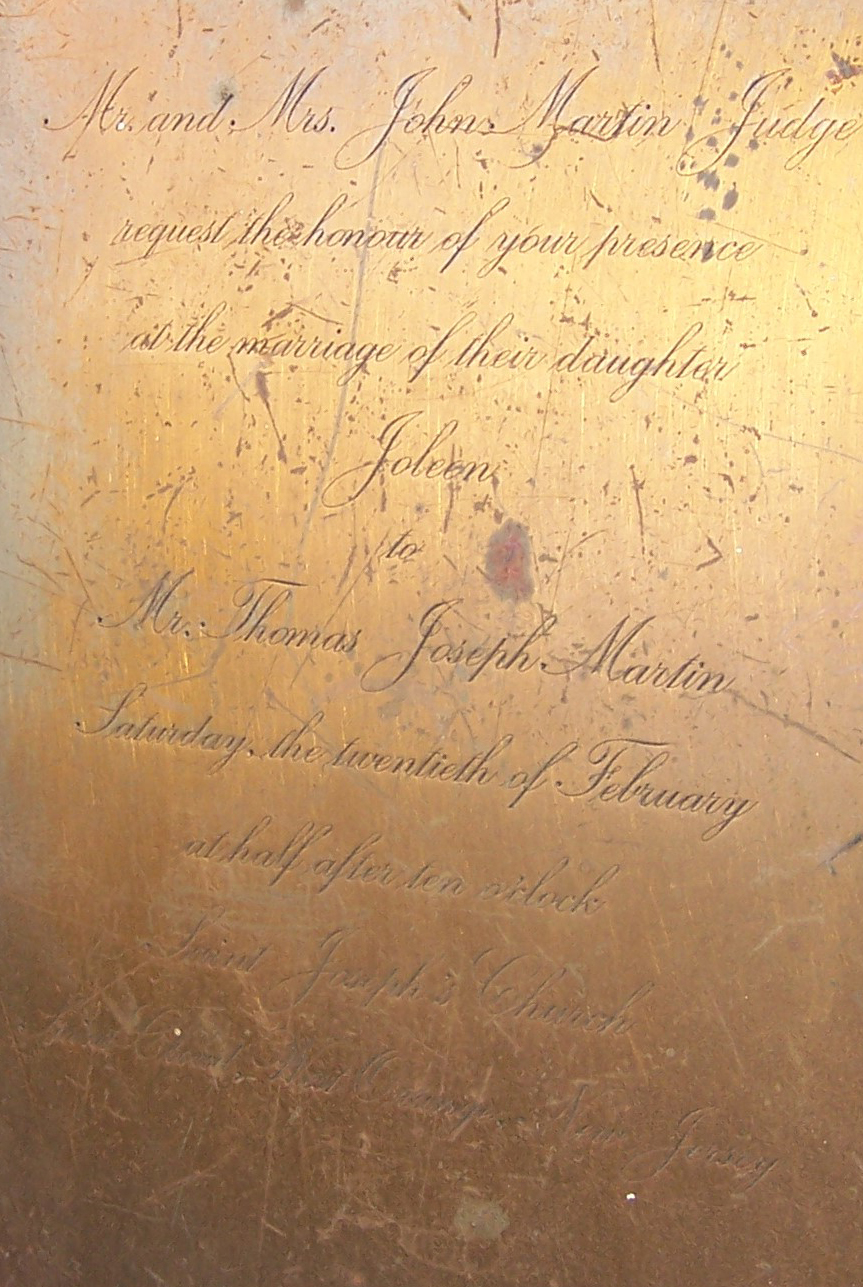 Mr. and Mrs. John Martin Judge
request the honour of your presence
at the marriage of their daughter
Joleen
to
Mr. Thomas Joseph Martin
Saturday, the twentieth of February
at half after ten o'clock
Saint Joseph's Church
West Orange, New Jersey